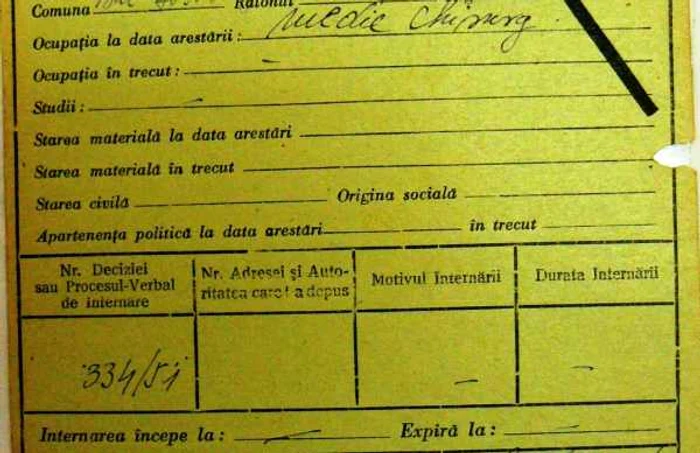 Comuna Raionul
Ocupația la data arestării: medic chirurg
Ocupația în trecut:
Studii: —
Starea materială la data arestări
Starea materială în trecut
Starea civilă Origina socială
Apartenența politică la data arestări în trecut
Nr. Deciziei
sau Procesul-Verbal
de internare
Nr. Adresei și Auto-
ritatea care l a depus
Motivul Internării
Durata Internării
334/51 — —
Internarea începe la: — Expiră la: —